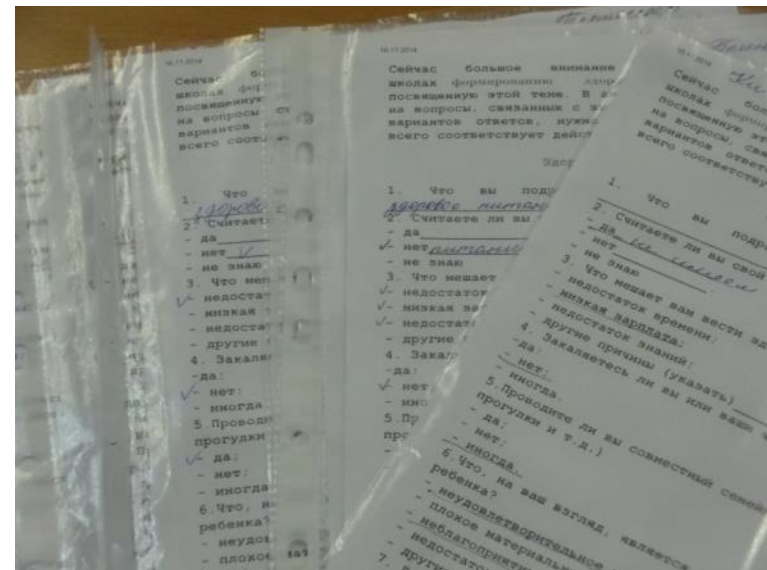 16.11.2014
Сейчас бо
школах форми
посвященную
на вопросы с
вариантов
всего соотв
1. Что
здорово
2. Считаете
- да
- нет V
- не знаю
3. Что меш
V- недостат
- низкая
- недоста
- другие
4. Закаля
-да:
V- нет:
- иногда
5. Проводи
прогулки
V- да:
- нет:
- иногда
6. Что, н
ребенка?
- неудов
- плохое
16.11.2014
Сейчас большое внимание
школах формированию здор
посвященную этой теме. В а
на вопросы, связанных с з
вариантов ответов, нужн
всего соответствует дейст
Здор
1. Что вы подр
здоровое питан
2. Считаете ли вы
- да
V- нет питание
- не знаю
3. Что мешает
V- недостаток
V- низкая за
V- недостат
- другие
4. Закал
-да:
V- нет
- ино
5. Пр
про
Сейчас бол
школах форми
посвященную эт
на вопросы, свя
вариантов ответо
всего соответству
1. Что вы подра
2. Считаете ли вы свой
- да не
- нет
- не знаю
3. Что мешает вам вести зд
- недостаток времени:
- низкая зарплата:
- недостаток знаний:
- другие причины (указать)
4. Закаляетесь ли вы или ваши ч
-да:
- нет:
- иногда.
5. Проводите ли вы совместный семей
прогулки и т.д.)
- да:
- нет:
- иногда.
6. Что, на ваш взгляд, является
ребенка?
- неудовлетворительное
- плохое материальн
- неблагоприятн
- недостато
- други
7.